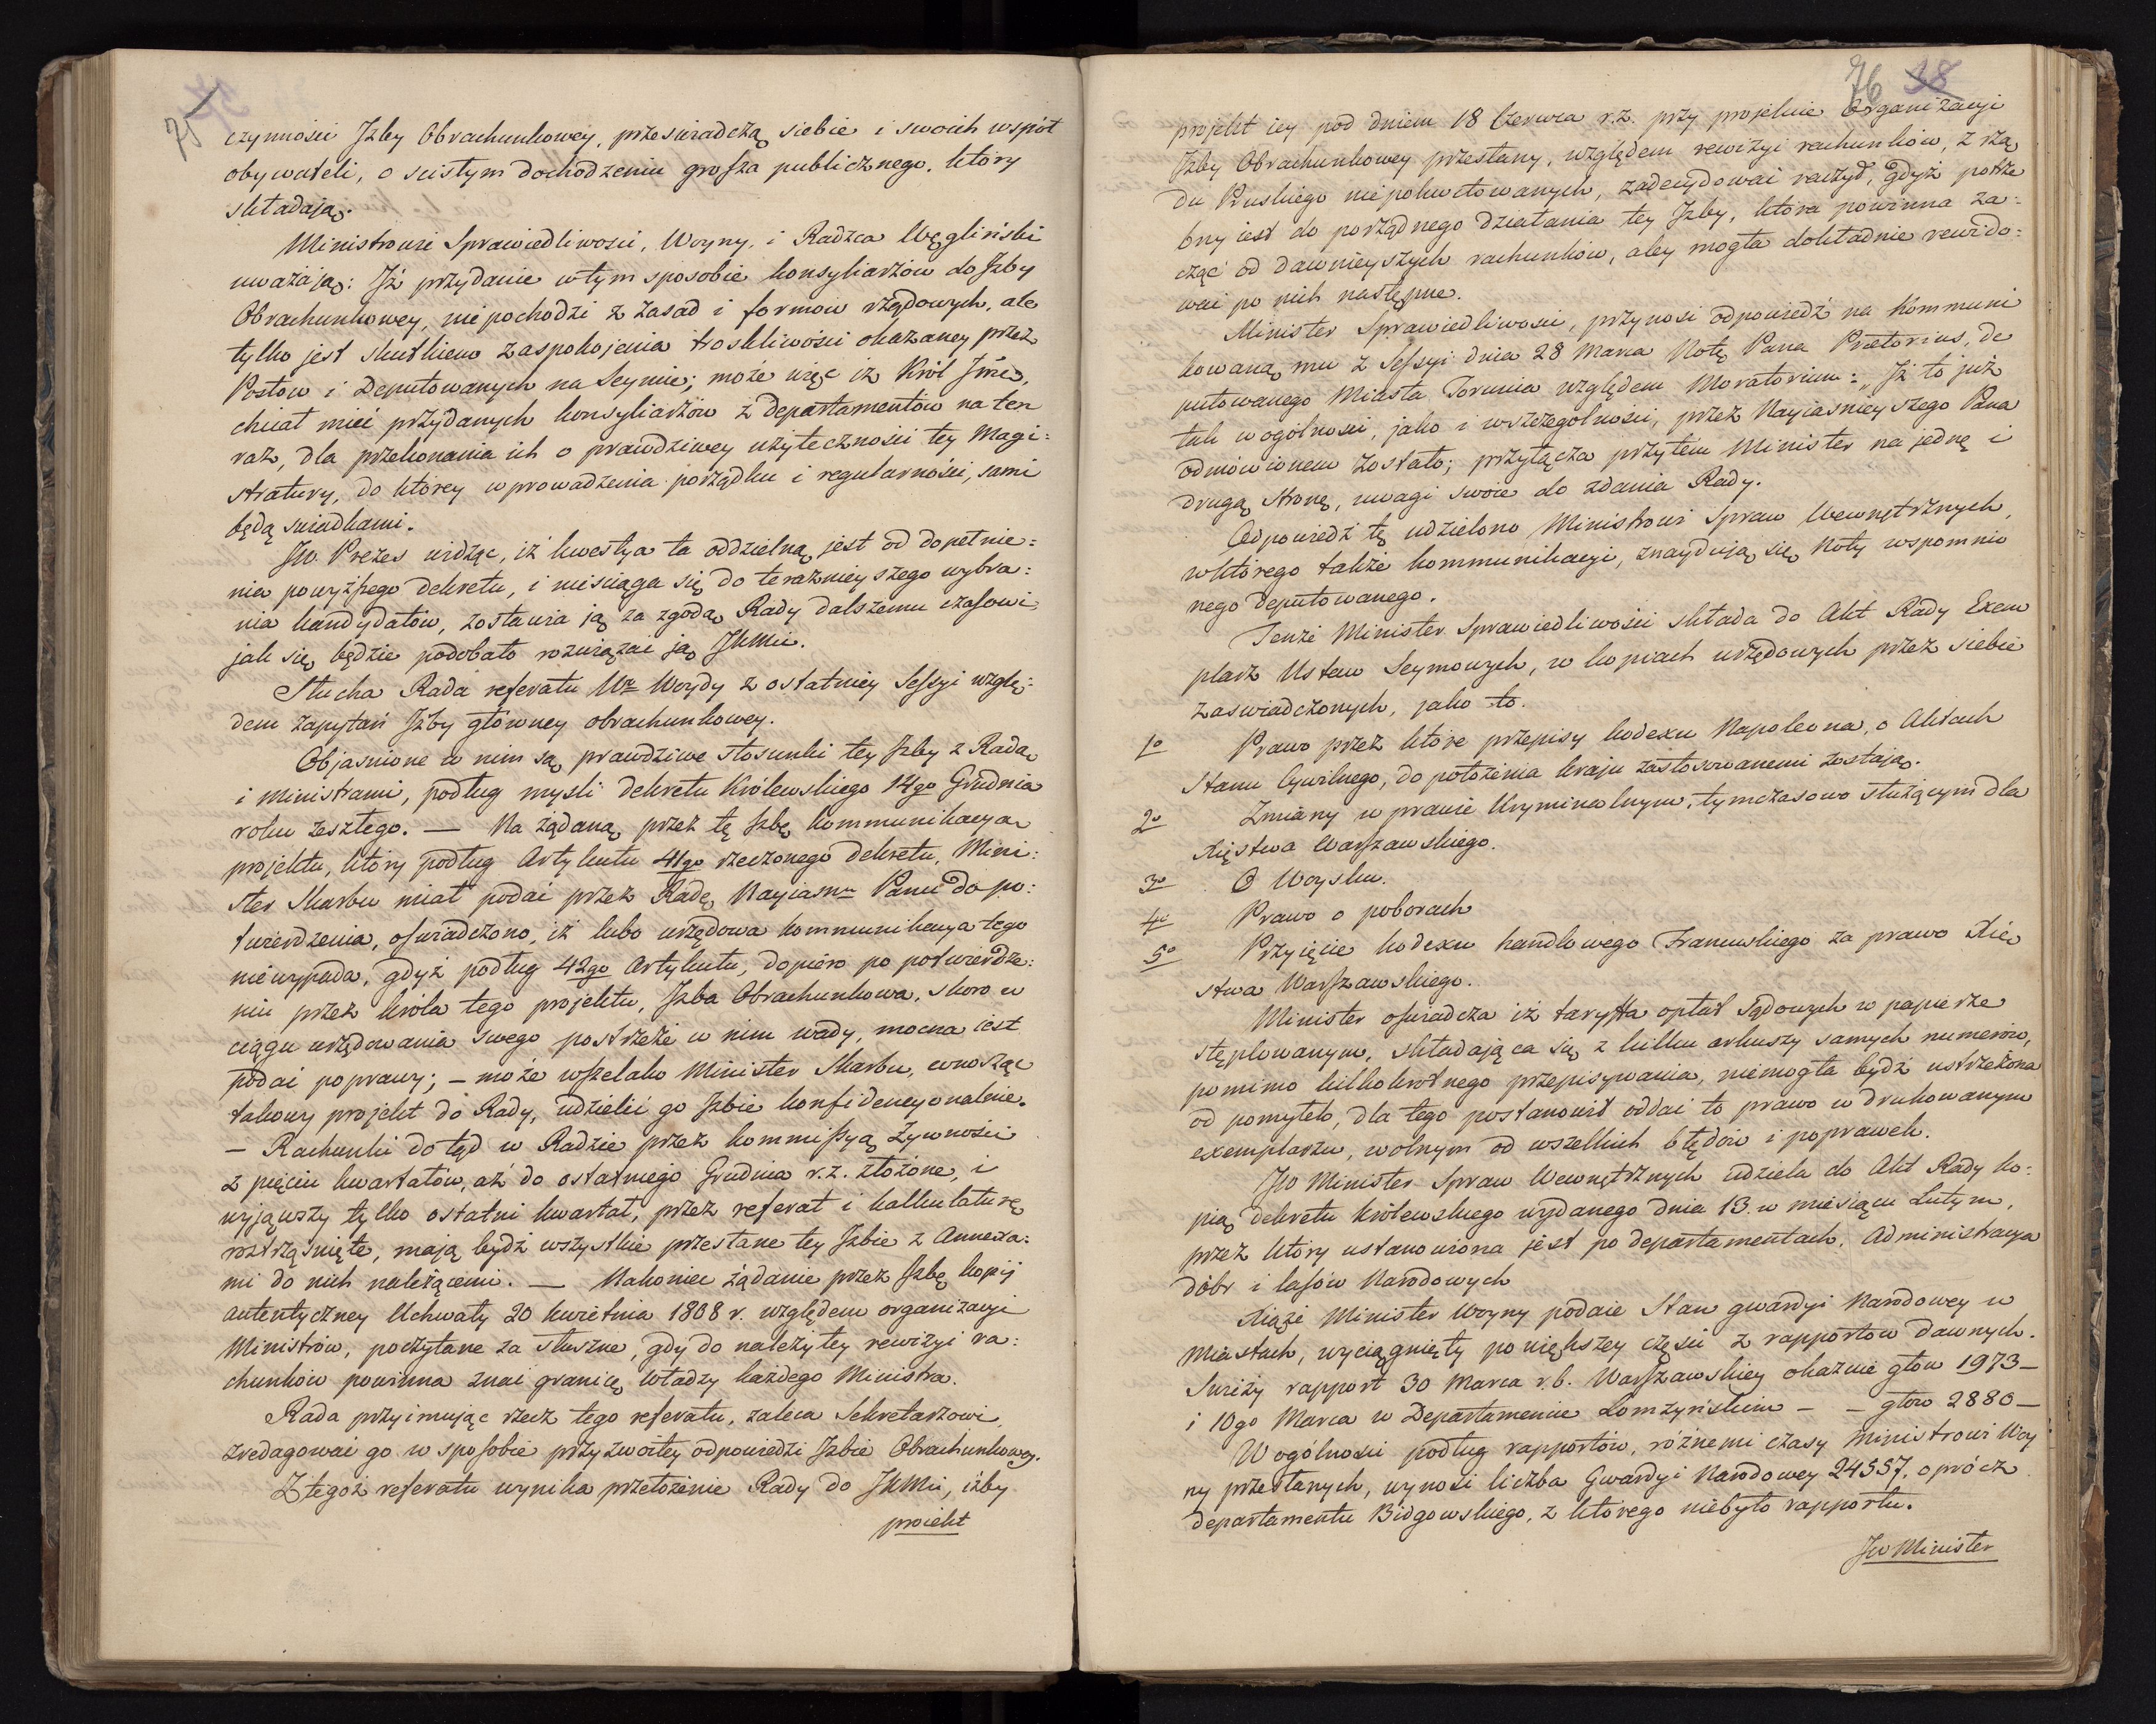 75
czynności Jzby Obrachunkowey, przeświadczą siebie i swoich wspót
obywateli, o scistym dochodzeniu grosza publicznego, który
sktadają.
Ministrowie Sprawiedliwości, Woyny, i Radzca Węgliński
uważają: Jż przydanie wtym sposobie konsyliarzów do Jzby
Obrachunkowey, nie pochodzi z zasad i formow rządowych, ale
tylko jest skutkiem zaspokojenia troskliwości okazaney przez
Postów i Deputowanych na Seymie; może więc iż Król Jmć,
chciat mieć przydanych konsyliarzów z departamentów na ten
raz, dla przekonania ich o prawdziwey użyteczności tey Magi:
stratury, do którey wprowadzenia porządku i regularności, sami
będą swiadkami.
JW. Prezes widząc, iż kwestya ta oddzielną jest od dopetnie:
nia powyższego dekretu, i niesciąga się do teraznieyszego wybra:
nia kandydatów, zostawia ją za zgodą Rady dalszemu czasowi,
jak się będzie podobato rozwiązać ją JKMci.
Stucha Rada referatu Wz Woydy z ostatniey Sessyi wzglę:
dem zapytań Jzby głowney obrachunkowey.
Objasnione w nim są prawdziwe stosunki tey Jzby z Radą
i Ministrami, podług mysli dekretu Królewskiego 14go Grudnia
roku zesztego. — Na żądaną przez tę Jzbę kommunikacyą
projektu, który podług Artykutu 41go rzeczonego dekretu, Mini:
ster Skarbu miat podać przez Radę Nayiasnu Panu do po:
twierdzenia, oświadczono, iż lubo urzędowa kommunikacya tego
niewypada, gdyż podług 42go Artykutu, dopiero po potwierdze:
niu przez króla tego projektu, Jzba Obrachunkowa, skoro w
ciągu urzędowania swego postrzeże w nim wady, mocna iest
podać poprawy; — może wszelako Minister Skarbu, wnosząc
takowy projekt do Rady, udzielić go Jzbie konfidencyonalnie.
— Rachunki dotąd w Radzie przez kommissyą Żywności
z pięciu kwartatów, aż do ostatniego Grudnia r.z. złożone, i
wyjąwszy tylko ostatni kwartat, przez referat i kalkulaturę
roztrząśnięte, mają bydź wszystkie przestane tey Jzbie z Annexa:
mi do nich należącemi. — Nakoniec żądanie przez Jzbę kopij
autentyczney Uchwaty 20 kwietnia 1808 r. względem organizacyi
Ministrów, poczytane za stuszne, gdy do należytey rewizyi ra:
chunków powinna znać granicę wtadzy każdego Ministra.
Rada przyimując rzecz tego referatu, zaleca Sekretarzowi,
zredagować go w sposobie przyzwoitey odpowiedzi Jzbie Obrachunkowey.
Z tegoż referatu wynika przetożenie Rady do JKMci, iżby
projekt
76 38
projekt iey pod dniem 18 Czerwca r.z. przy projekcie Organizacyi
Jzby Obrachunkowey przestany, względem rewizyi rachunków, z rzą
du Pruskiego niepokwitowanych, zadecydować raczyt, gdyż potrze
bny iest do porządnego dziatania tey Jzby, która powinna za:
cząć od dawnieyszych rachunków, aby mogta doktadnie rewido:
wać po nich następne.
Minister Sprawiedliwości, przynosi odpowiedź na kommuni
kowaną mu z Sessyi dnia 28 Marca Notę Pana Prætorius, de
putowanego Miasta Torunia względem Moratorium: „Jż to już
tak w ogólności, jako i wszczególności, przez Nayiasnieyszego Pana
odmówionem zostato; przytącza przytem Minister na jednę i
drugą stronę, uwagi swoie do zdania Rady.
Odpowiedź tę udzielono Ministrowi Spraw Wewnętrznych,
wktórego także kommunikacyi, znayduią się Noty wspomnio
nego deputowanego.
Tenże Minister Sprawiedliwości sktada do Akt Rady Exem
plarz Ustaw Seymowych, w kopiach urzędowych przez siebie
zaswiadczonych, jako to.
1o Prawo przez które przepisy kodexu Napoleona, o Aktach
Stanu Cywilnego, do potożenia kraju zastosowanemi zostają.
2o Zmiany w prawie Kryminalnym, tymczasowo stużącym dla
Xięstwa Warszawskiego.
3o O Woysku.
4o Prawo o poborach
5o Przyięcie kodexu handlowego Francuskiego za prawo Xię
stwa Warszawskiego.
Minister oświadcza iż taryffa optat sądowych w papierze
stęplowanym, sktadająca się z kilku arkuszy samych numerów,
pomimo kilkokrotnego przepisywania, niemogta bydź ustrzeżona
od pomytek, dla tego postanowit oddać to prawo w drukowanym
exemplarzu, wolnym od wszelkich błędów i poprawek.
JW Minister Spraw Wewnętrznych udziela do Akt Rady ko:
pią dekretu królewskiego wydanego dnia 13. w miesiącu Lutym,
przez który ustanowiona jest po departamentach, Administracya
dóbr i lasów Narodowych
Xiąże Minister Woyny podaie Stan gwardyi Narodowey w
Miastach, wyciągnięty po większey części z rapportów dawnych.
Swieży rapport 30 Marca r.b. Warszawskiey okazuie głów 1973—
i 10go Marca w Departamencie Łomżyńskim — — głów 2880—
W ogólności podług rapportów, różnemi czasy Ministrowi Woy
ny przestanych, wynosi liczba Gwardyi Narodowey 24557. oprócz
departamentu Bidgowskiego, z którego niebyto rapportu.
JW Minister